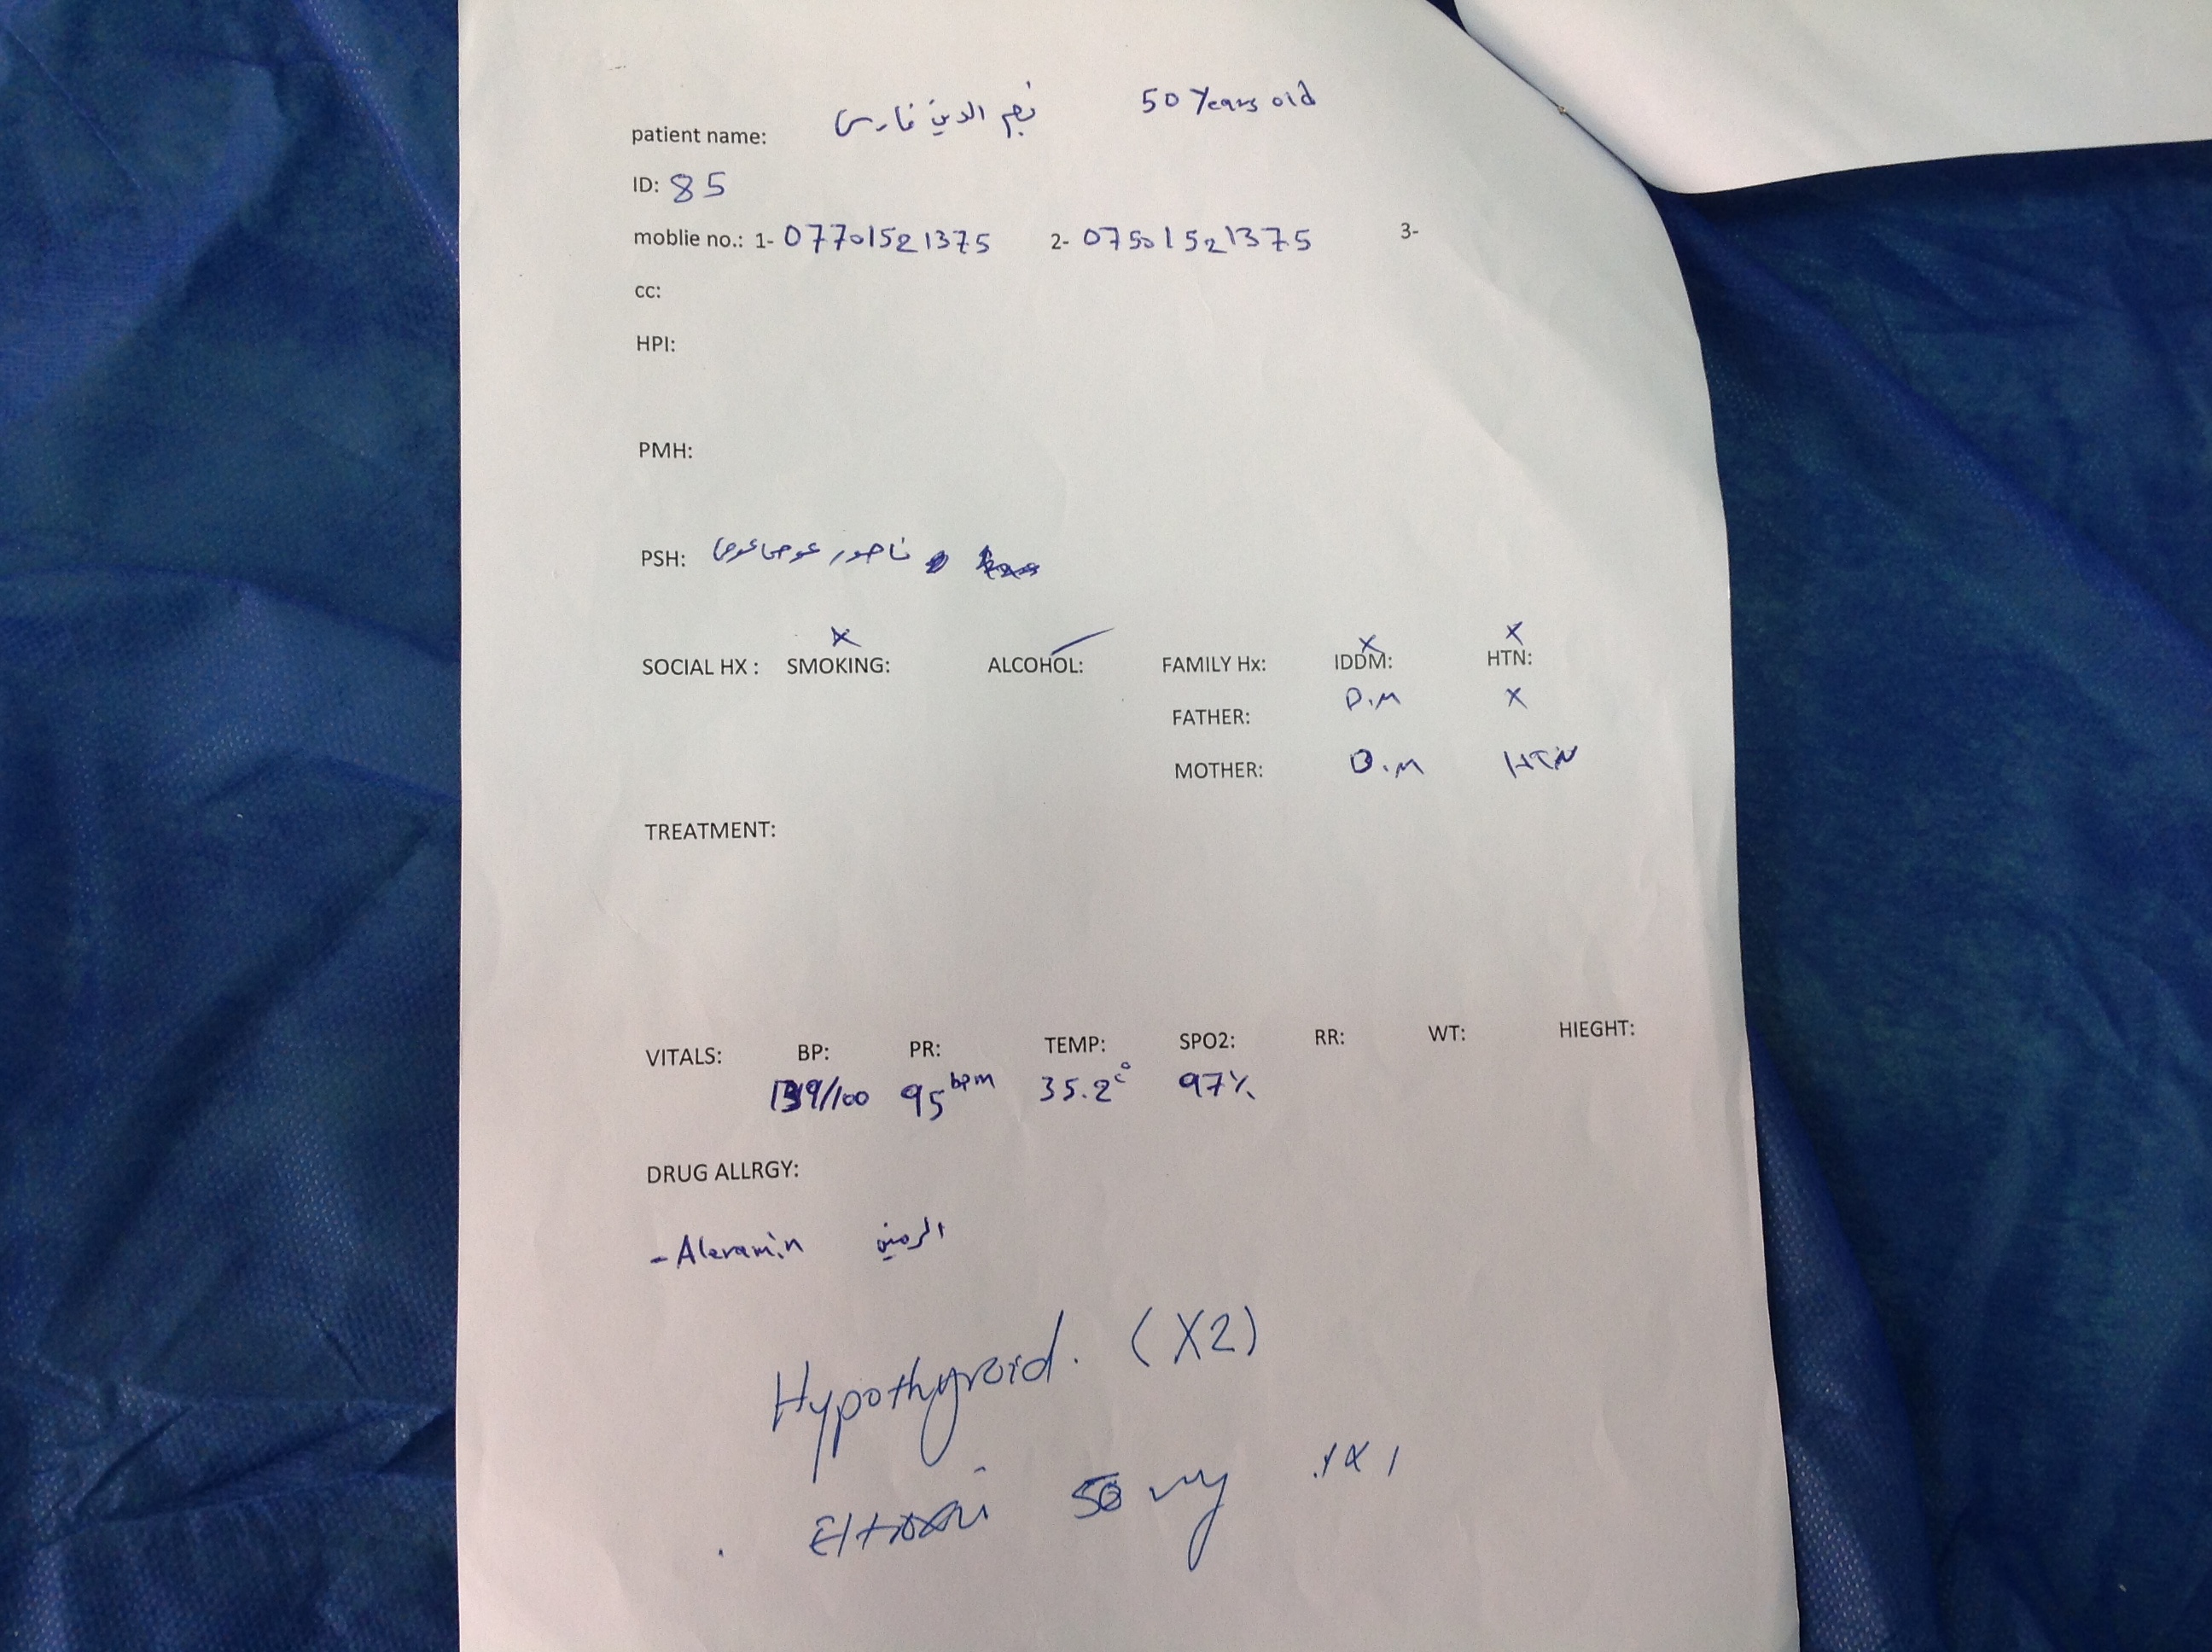 patient name: نجم الدين فارس 50 Years old
ID: 85
moblie no.: 1- 07701521375 2- 07501521375 3-
cc:
HPI:
PMH:
PSH: ناصور عصعوصي
SOCIAL HX : SMOKING: x ALCOHOL: ✓ FAMILY Hx: IDDM: x HTN: x
FATHER: D.M x
MOTHER: D.M HTN
TREATMENT:
VITALS: BP: PR: TEMP: SPO2: RR: WT: HIEGHT:
139/100 95 bpm 35.2 c° 97%
DRUG ALLRGY:
- Aleramin الرمين
Hypothyroid. (X2)
Eltroxin 50 mg 1x1